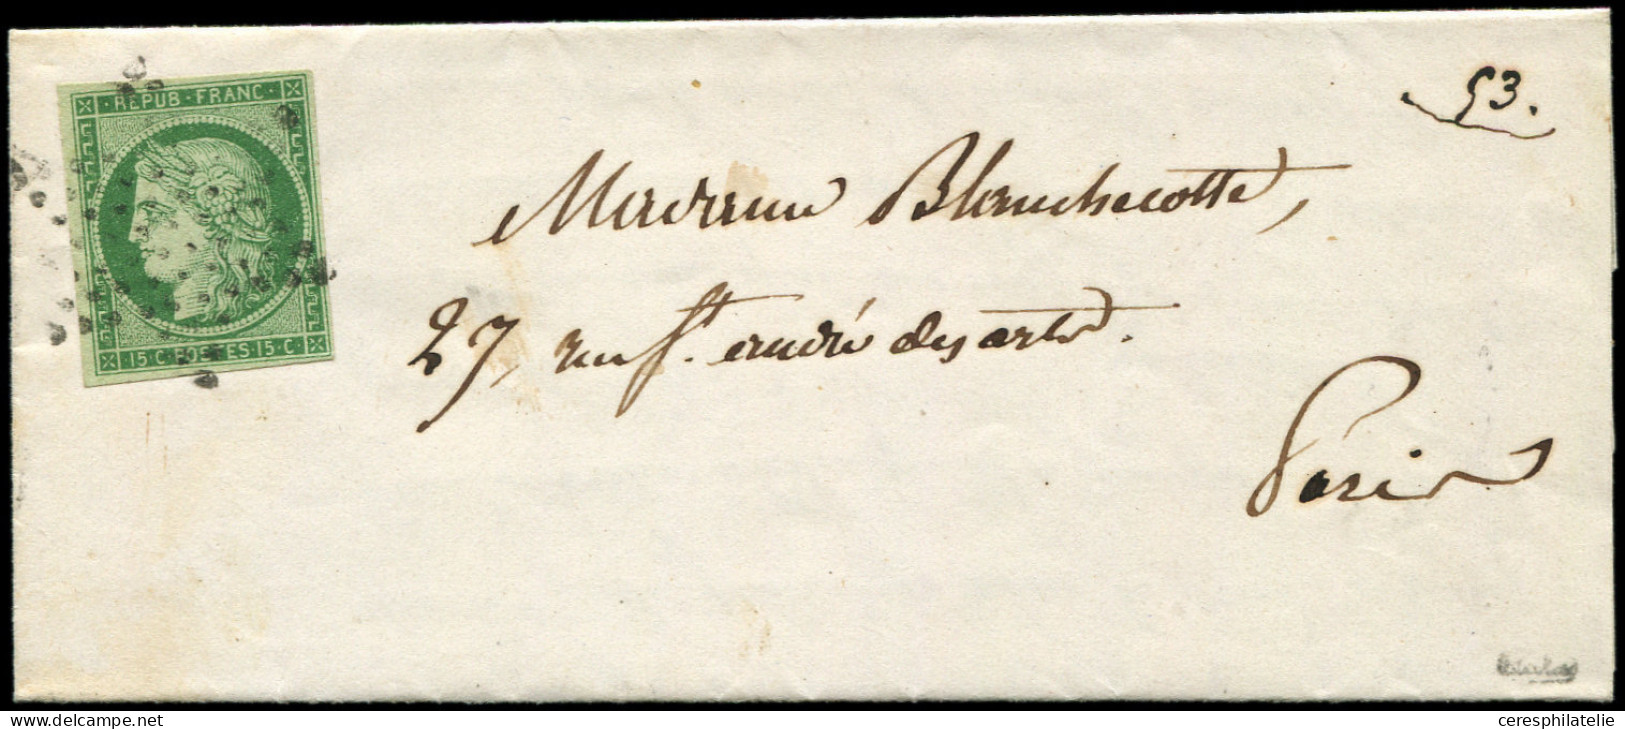 REPUB · FRANC ·
15 C · POSTES · 15 C ·
53.
Madame Blanchecotte,
27, rue St. andré des arts.
Paris
ceresphilatelie
delcampe.net